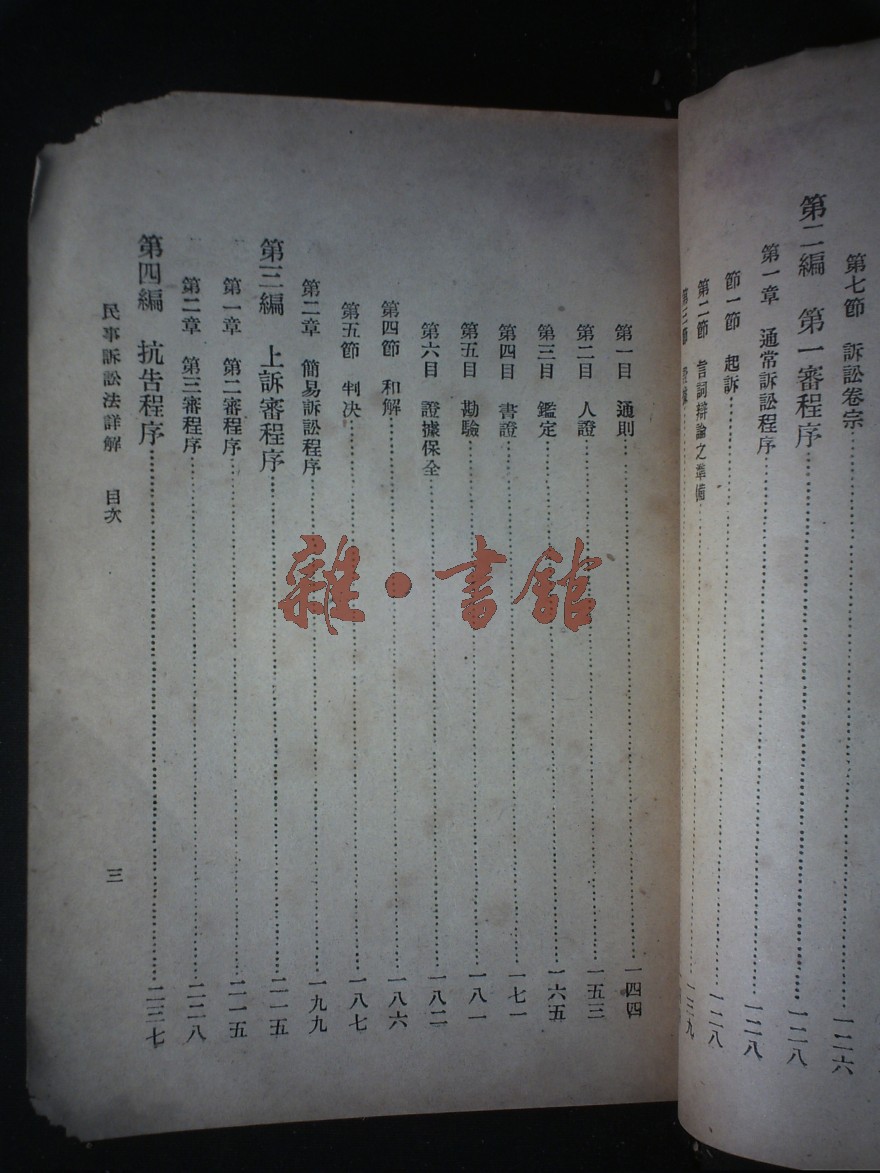 第七節　訴訟卷宗……一二六
第二編　第一審程序……一二八
第一章　通常訴訟程序……一二八
節一節　起訴……一二八
第二節　言詞辯論之準備……一三九
第三節
第一目　通則……一四四
第二目　人證……一五三
第三目　鑑定……一六五
第四目　書證……一七一
第五目　勘驗……一八一
第六目　證據保全……一八二
第四節　和解……一八六
第五節　判决……一八七
第二章　簡易訴訟程序……一九九
第三編　上訴審程序……二一五
第一章　第二審程序……二一五
第二章　第三審程序……二二八
第四編　抗告程序……二三七
民事訴訟法詳解　目次　三
雜·書館